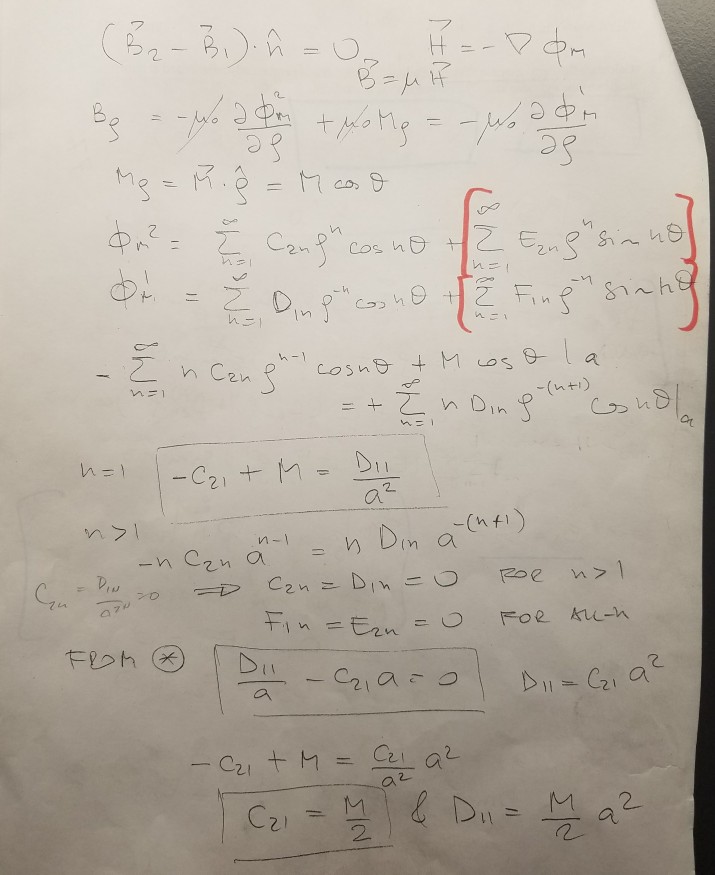 (B⃗₂ − B⃗₁)·n̂ = 0, H⃗ = −∇ϕₘ
B⃗ = μH⃗
B_ρ = −μ₀ ∂ϕ²_M/∂ρ + μ₀M_ρ = −μ₀ ∂ϕ¹_M/∂ρ
M_ρ = M⃗·ρ̂ = M cos θ
ϕ_m² = ∑_{n=1}^∞ C₂ₙρⁿ cos nθ + [∑_{n=1}^∞ E₂ₙρⁿ sin nθ]
ϕ_M¹ = ∑_{n=1}^∞ D₁ₙρ⁻ⁿ cos nθ + {∑_{n=1}^∞ F₁ₙρ⁻ⁿ sin nθ}
− ∑_{n=1}^∞ n C₂ₙρⁿ⁻¹ cos nθ + M cos θ |a
= + ∑_{n=1}^∞ n D₁ₙρ^{−(n+1)} cos nθ|ₐ
n=1 −C₂₁ + M = D₁₁/a²
n>1
−n C₂ₙ aⁿ⁻¹ = n D₁ₙ a^{−(n+1)}
C₂ₙ = D₁ₙ/a²ⁿ = 0 ⇒ C₂ₙ = D₁ₙ = 0 FOR n>1
F₁ₙ = E₂ₙ = 0 FOR ALL-n
FROM ⊛ D₁₁/a − C₂₁a = 0 D₁₁ = C₂₁a²
−C₂₁ + M = C₂₁/a² a²
C₂₁ = M/2 & D₁₁ = M/2 a²